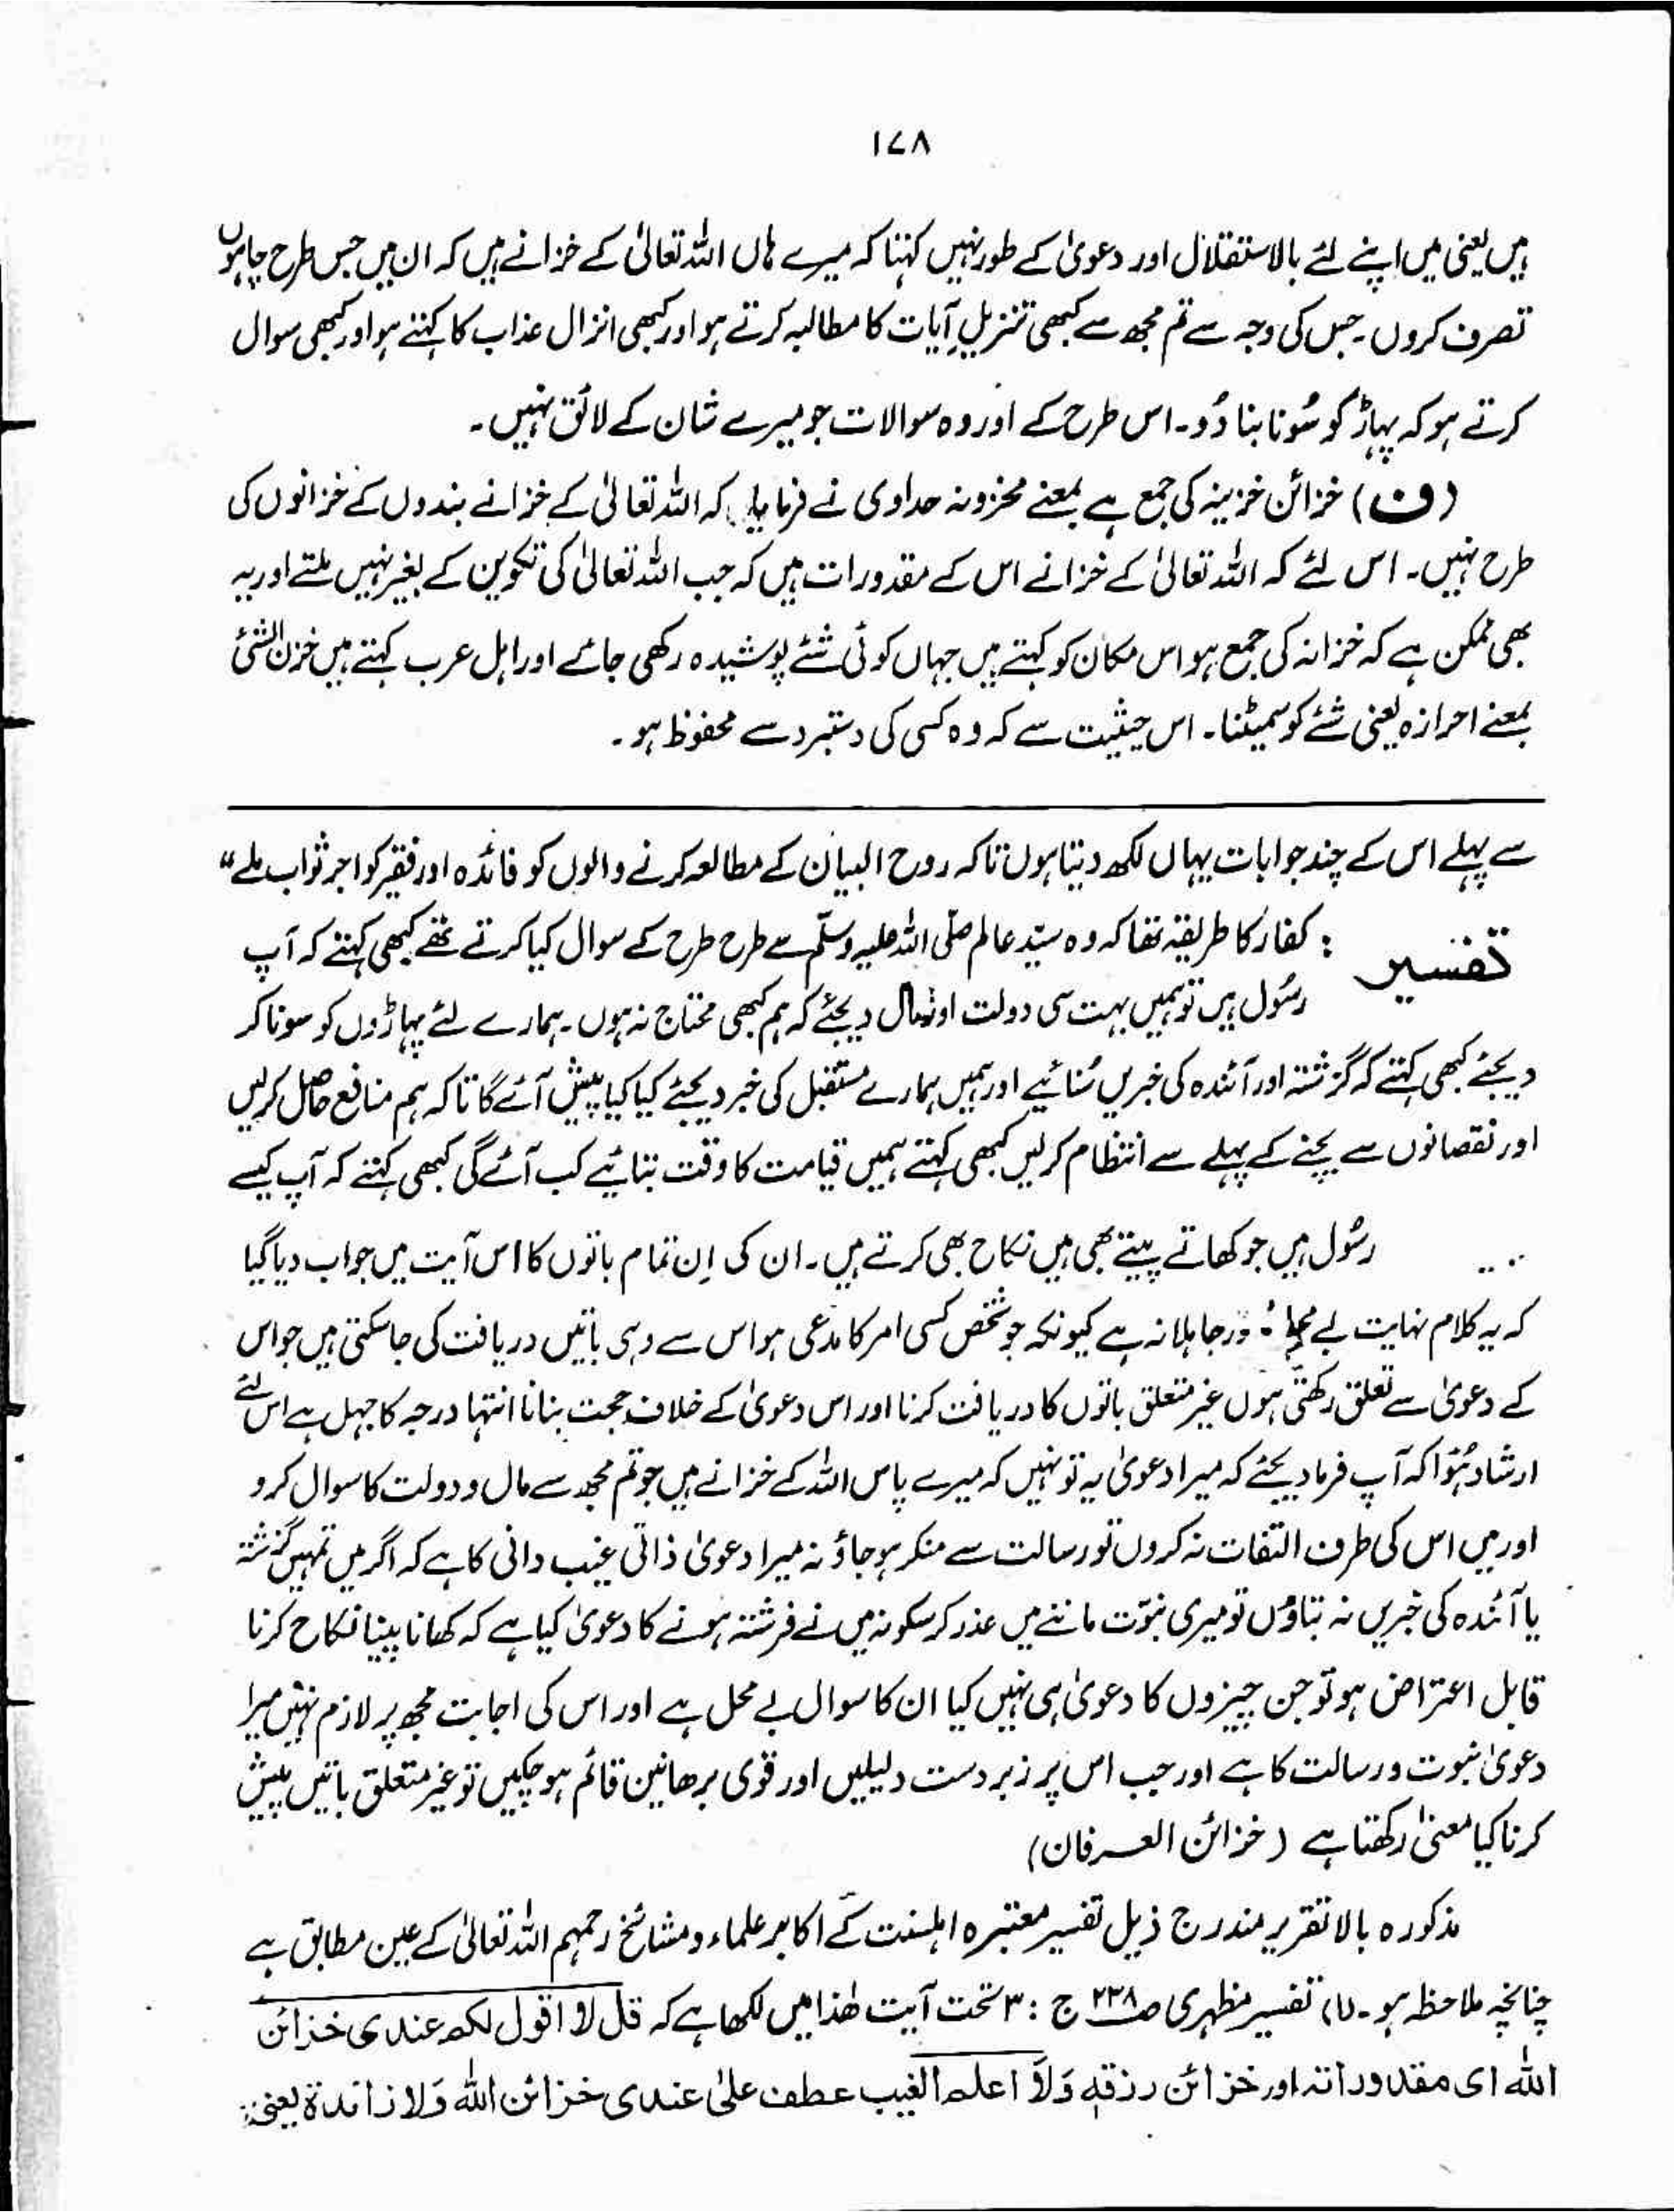 ۱۷۸
ہیں یعنی میں اپنے لئے بالاستقلال اور دعویٰ کے طور نہیں کہتا کہ میرے ہاں اللہ تعالیٰ کے خزانے ہیں کہ ان میں جس طرح چاہوں
تصرف کروں۔ جس کی وجہ سے تم مجھ سے کبھی تنزیلِ آیات کا مطالبہ کرتے ہو اور کبھی انزال عذاب کا کہتے ہو اور کبھی سوال
کرتے ہو کہ پہاڑ کو سُونا بنا دُو۔ اس طرح کے اور وہ سوالات جو میرے شان کے لائق نہیں۔
(ف) خزائن خزینہ کی جمع ہے بمعنے مخزونہ حدادی نے فرمایا کہ اللہ تعالیٰ کے خزانے بندوں کے خزانوں کی
طرح نہیں۔ اس لئے کہ اللہ تعالیٰ کے خزانے اس کے مقدورات ہیں کہ جب اللہ تعالیٰ کی تکوین کے بغیر نہیں ملتے اور یہ
بھی ممکن ہے کہ خزانہ کی جمع ہو اس مکان کو کہتے ہیں جہاں کوئی شئے پوشیدہ رکھی جائے اور اہل عرب کہتے ہیں خزن الشئی
بمعنے احرازہ یعنی شئے کو سمیٹنا۔ اس حیثیت سے کہ وہ کسی کی دستبرد سے محفوظ ہو۔
سے پہلے اس کے چند جوابات یہاں لکھ دیتا ہوں تاکہ روح البیان کے مطالعہ کرنے والوں کو فائدہ اور فقیر کو اجر ثواب ملے"
تفسیر : کفار کا طریقہ تھا کہ وہ سیّدِ عالم صلّی اللہ علیہ وسلّم سے طرح طرح کے سوال کیا کرتے تھے کبھی کہتے کہ آپ
رسُول ہیں تو ہمیں بہت سی دولت اور مال دیجئے کہ ہم کبھی محتاج نہ ہوں۔ ہمارے لئے پہاڑوں کو سونا کر
دیجئے کبھی کہتے کہ گزشتہ اور آئندہ کی خبریں سُنائیے اور ہمیں ہمارے مستقبل کی خبر دیجئے کیا کیا پیش آئے گا تاکہ ہم منافع حاصل کرلیں
اور نقصانوں سے بچنے کے پہلے سے انتظام کرلیں کبھی کہتے ہمیں قیامت کا وقت بتائیے کب آئے گی کبھی کہتے کہ آپ کیسے
رسُول ہیں جو کھاتے پیتے بھی ہیں نکاح بھی کرتے ہیں۔ ان کی اِن تمام باتوں کا اس آیت میں جواب دیا گیا
کہ یہ کلام نہایت بے محل اور جاہلانہ ہے کیونکہ جو شخص کسی امر کا مدعی ہو اس سے وہی باتیں دریافت کی جاسکتی ہیں جو اس
کے دعویٰ سے تعلق رکھتی ہوں غیر متعلق باتوں کا دریافت کرنا اور اس دعویٰ کے خلاف حجت بنانا انتہا درجہ کا جہل ہے اس لئے
ارشاد ہُوا کہ آپ فرما دیجئے کہ میرا دعویٰ یہ تو نہیں کہ میرے پاس اللہ کے خزانے ہیں جو تم مجھ سے مال و دولت کا سوال کرو
اور میں اس کی طرف التفات نہ کروں تو رسالت سے منکر ہو جاؤ نہ میرا دعویٰ ذاتی غیب دانی کا ہے کہ اگر میں تمہیں گزشتہ
یا آئندہ کی خبریں نہ بتاؤں تو میری نبوّت ماننے میں عذر کر سکو نہ میں نے فرشتہ ہونے کا دعویٰ کیا ہے کہ کھانا پینا نکاح کرنا
قابل اعتراض ہو تو جن چیزوں کا دعویٰ ہی نہیں کیا ان کا سوال بے محل ہے اور اس کی اجابت مجھ پر لازم نہیں میرا
دعویٰ نبوت و رسالت کا ہے اور جب اس پر زبردست دلیلیں اور قوی برھانین قائم ہو چکیں تو غیر متعلق باتیں پیش
کرنا کیا معنیٰ رکھتا ہے (خزائن العرفان)
مذکورہ بالا تقریر مندرج ذیل تفسیر معتبرہ اہلسنت کے اکابر علماء و مشائخ رحمہم اللہ تعالیٰ کے عین مطابق ہے
چنانچہ ملاحظہ ہو۔ (۱) تفسیر مظہری ص ۲۳۸ ج : ۳ تحت آیت ھٰذا میں لکھا ہے کہ قل لا اقول لکم عندی خزائن
اللہ ای مقدوراتہ اور خزائن رزقہ وَلاَ اعلم الغیب عطف علیٰ عندی خزائن اللہ وَلا زائدۃ یعنی